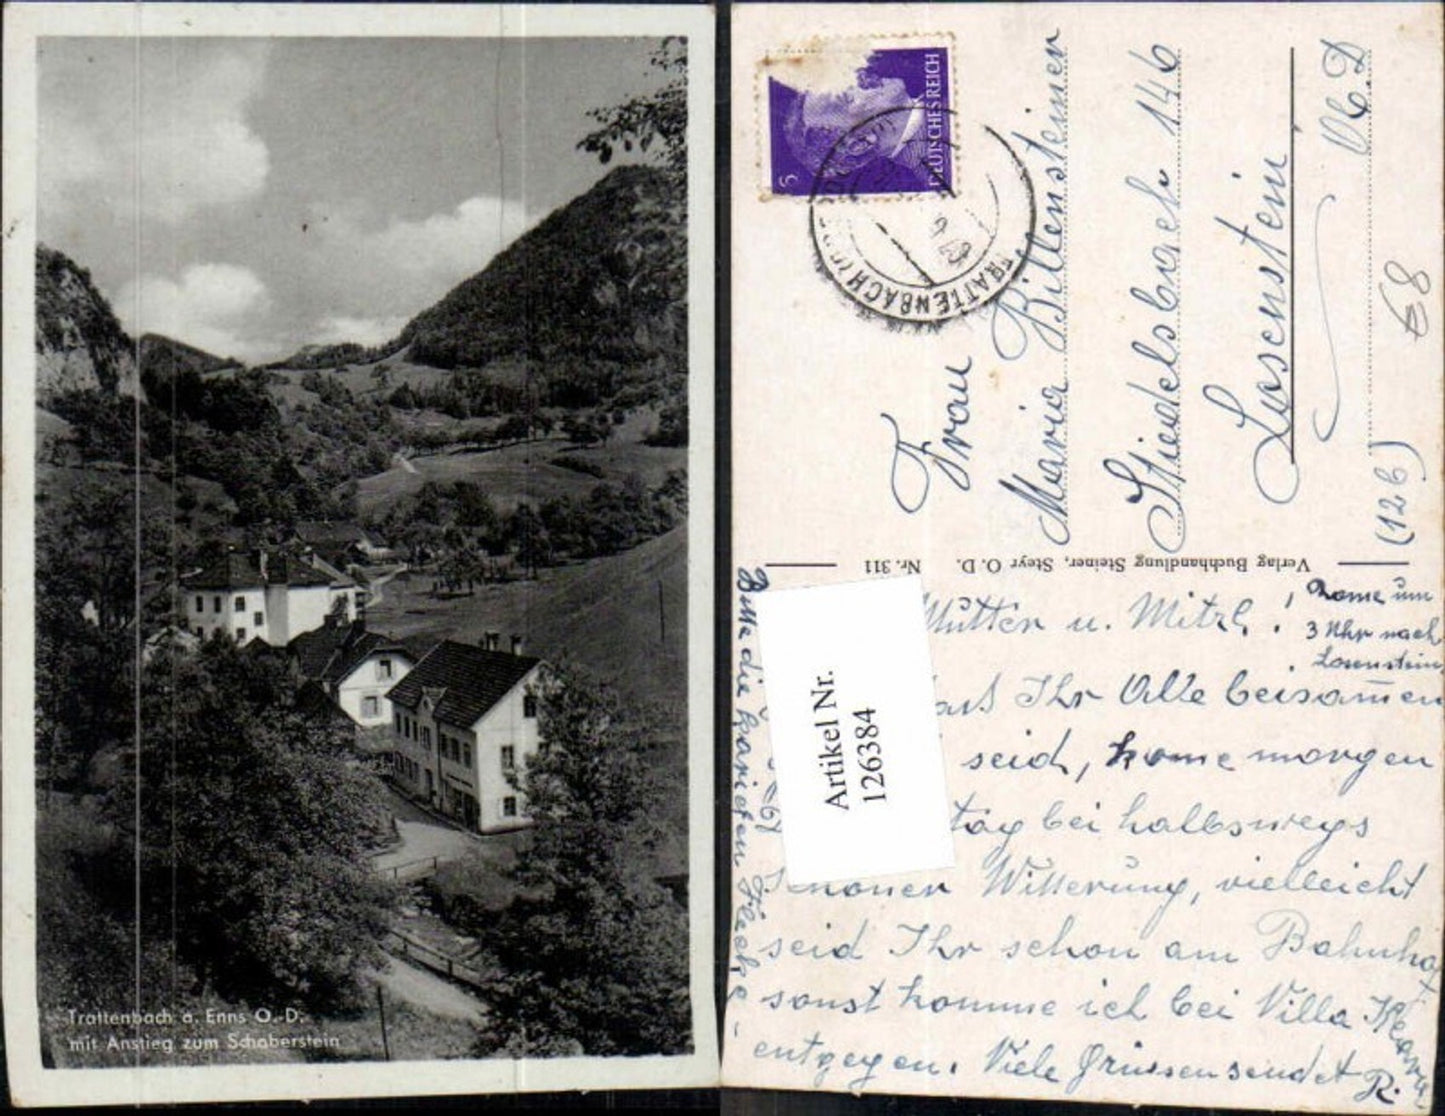 Trattenbach a. Enns O.-D.
mit Anstieg zum Schoberstein
DEUTSCHES REICH
6
TRATTENBACH
Frau
Maria Billensteiner
Stiedelsbach 146
Losenstein
O.D
(12b)
€8
Nr. 311
Verlag Buchhandlung Steiner, Steyr O. D.
Artikel Nr.
126384
Mutter u. Mitzl!
kome um
3 Uhr nach
Losenstein
Ihr Alle beisamen
seid, kome morgen
tag bei halbswegs
schöner Witterung, vielleicht
seid Ihr schon am Bahnhof
sonst komme ich bei Villa
entgegen. Viele Grüssen sendet R.
Bitte die